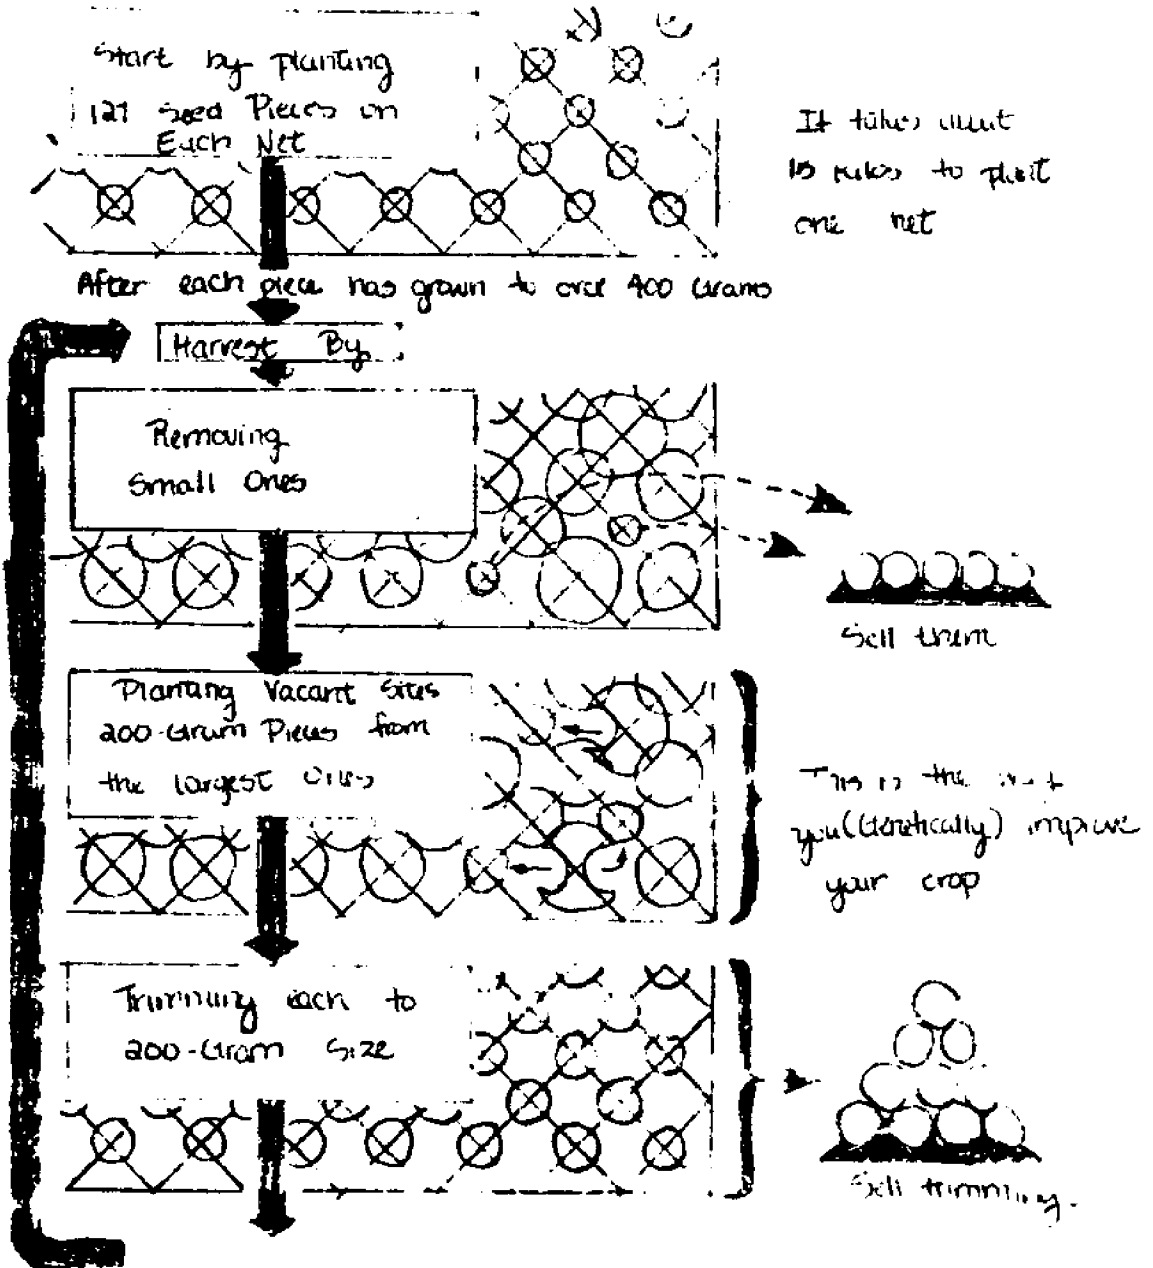 Start by planting
127 Seed Pieces on
Each Net
It takes
to plant
one net
After each piece has grown to over 400 Grams
Harvest By
Removing
Small Ones
Sell them
Planting Vacant Sites
200-Gram Pieces from
the largest Ones
This is the
you (Genetically) improve
your crop
Trimming each to
200-Gram Size
Sell trimming.